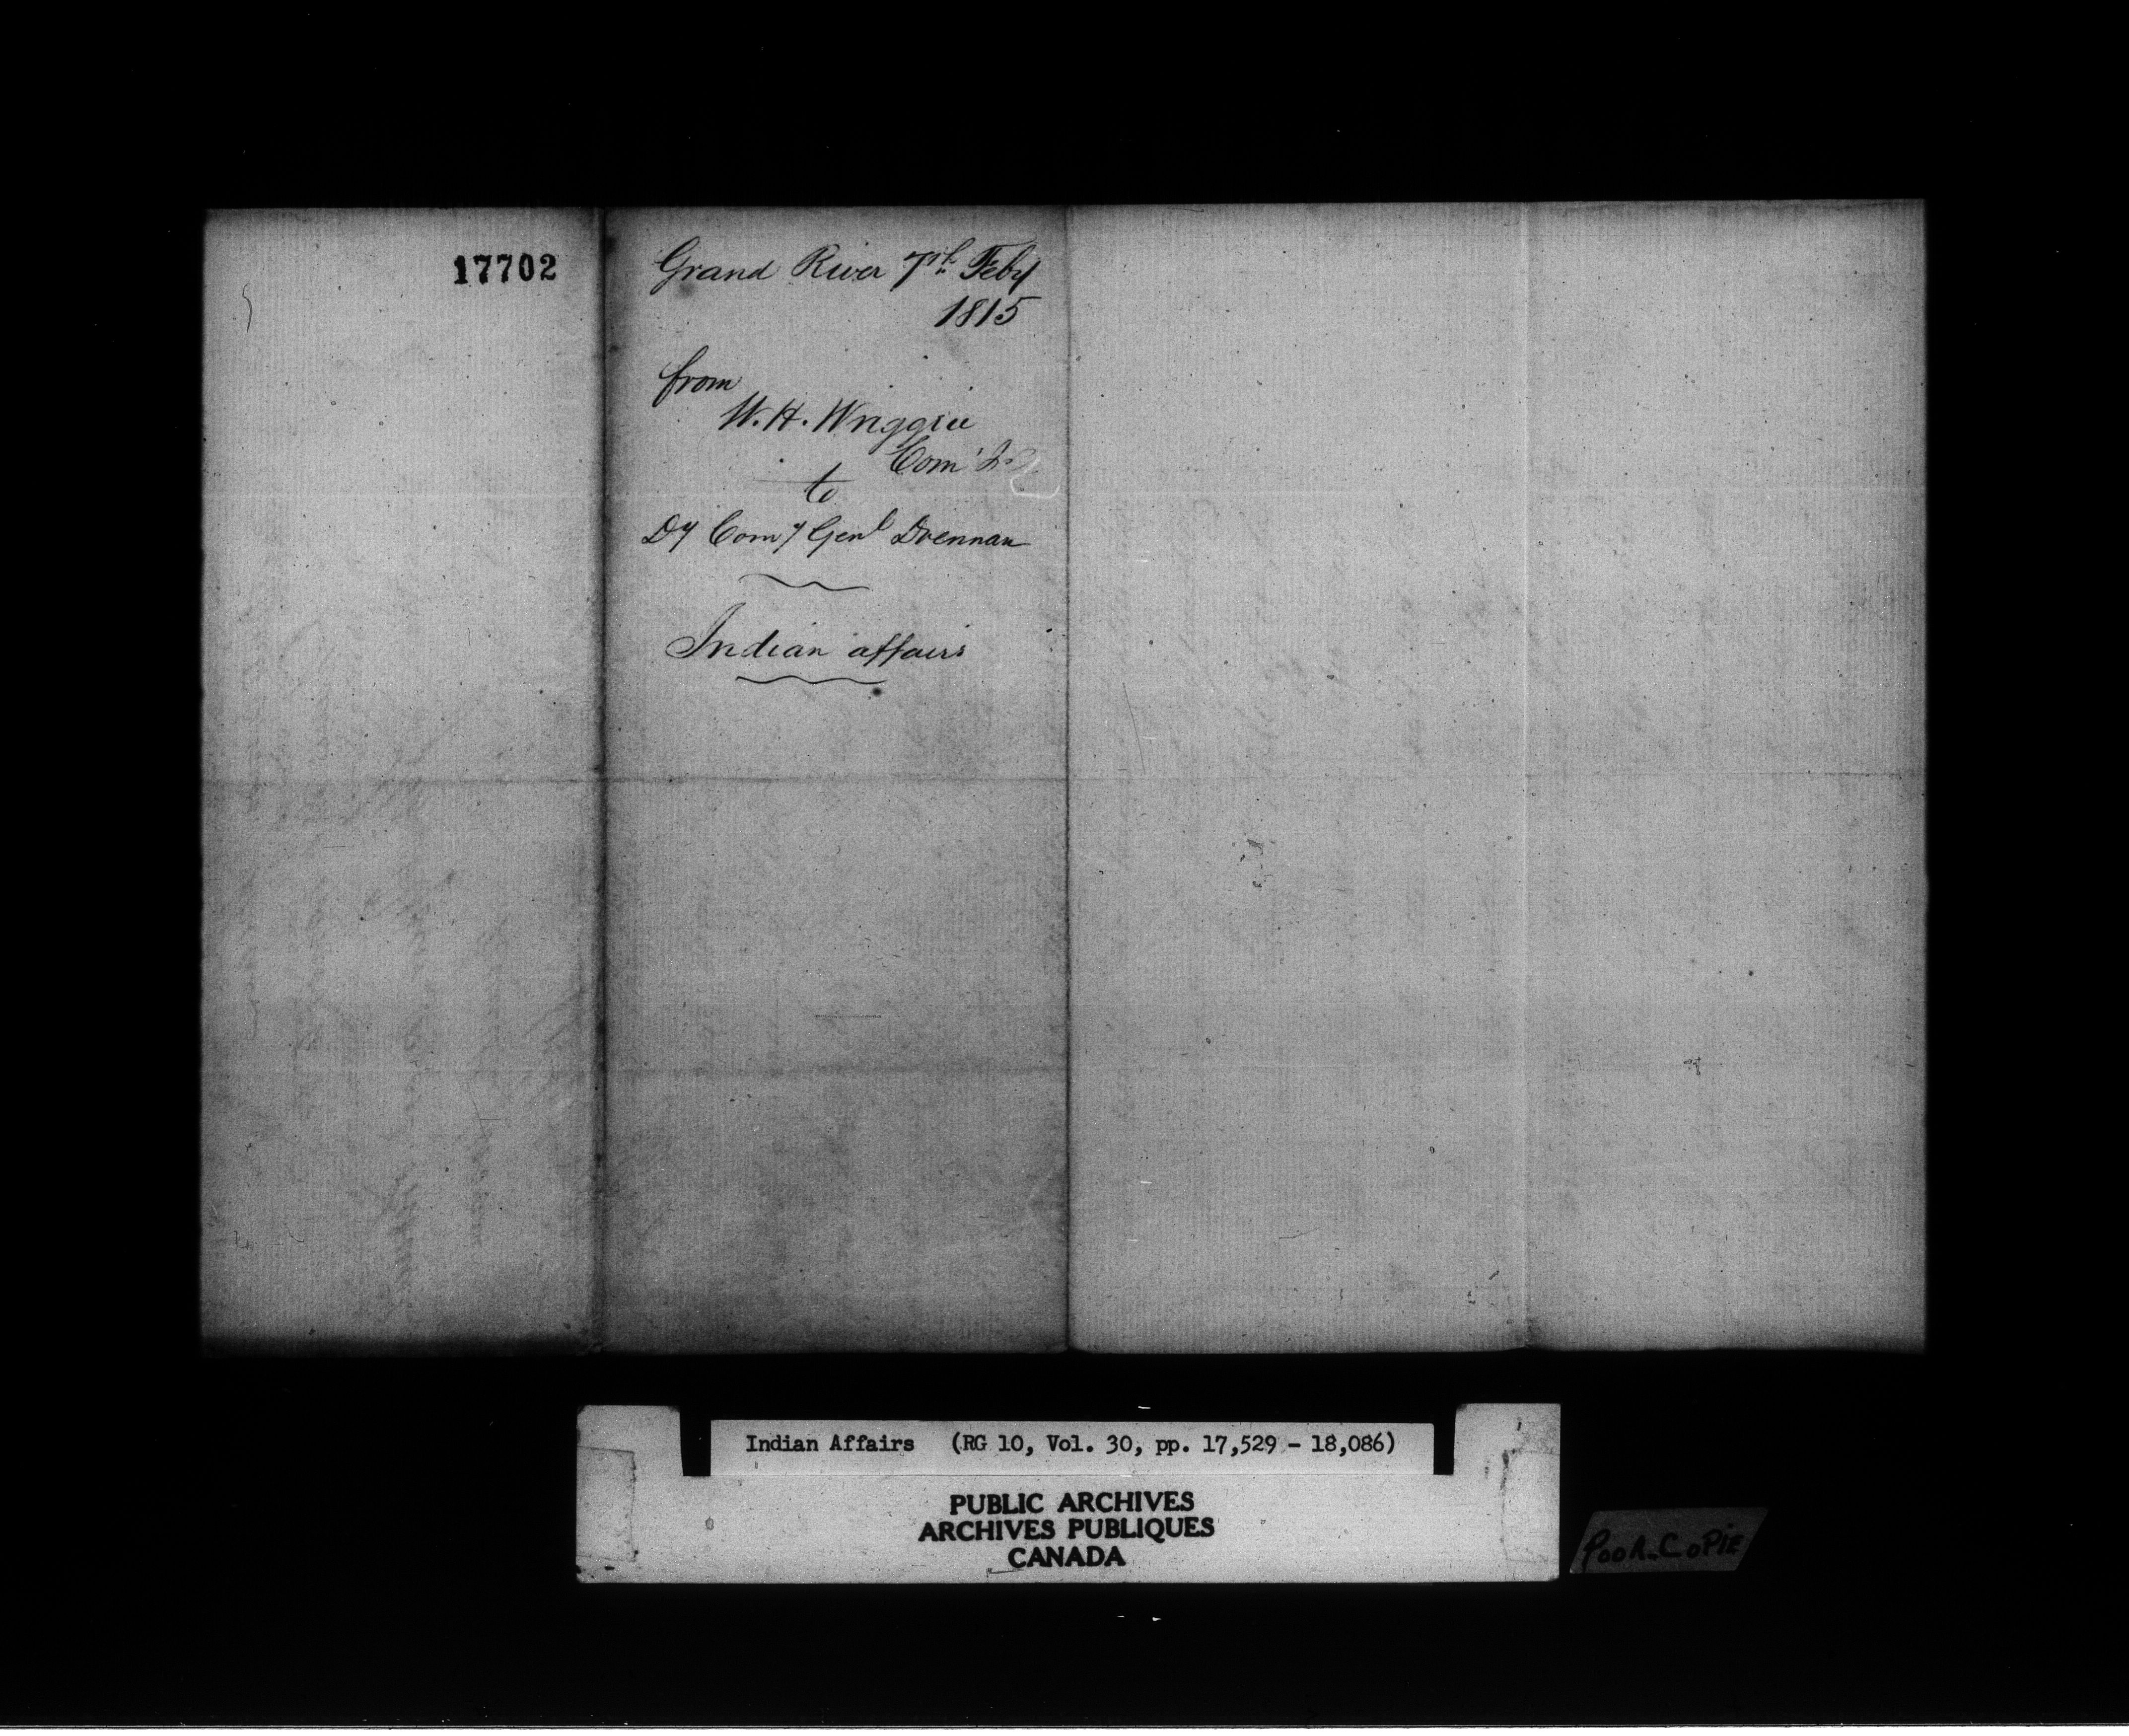 17702
Grand River 7th Feby
1815
from
W. H. Wriggie
Com
to
Dy Comy Genl Drennan
Indian affairs
Indian Affairs (RG 10, Vol. 30, pp. 17,529 - 18,086)
PUBLIC ARCHIVES
ARCHIVES PUBLIQUES
CANADA
POOR-COPIE